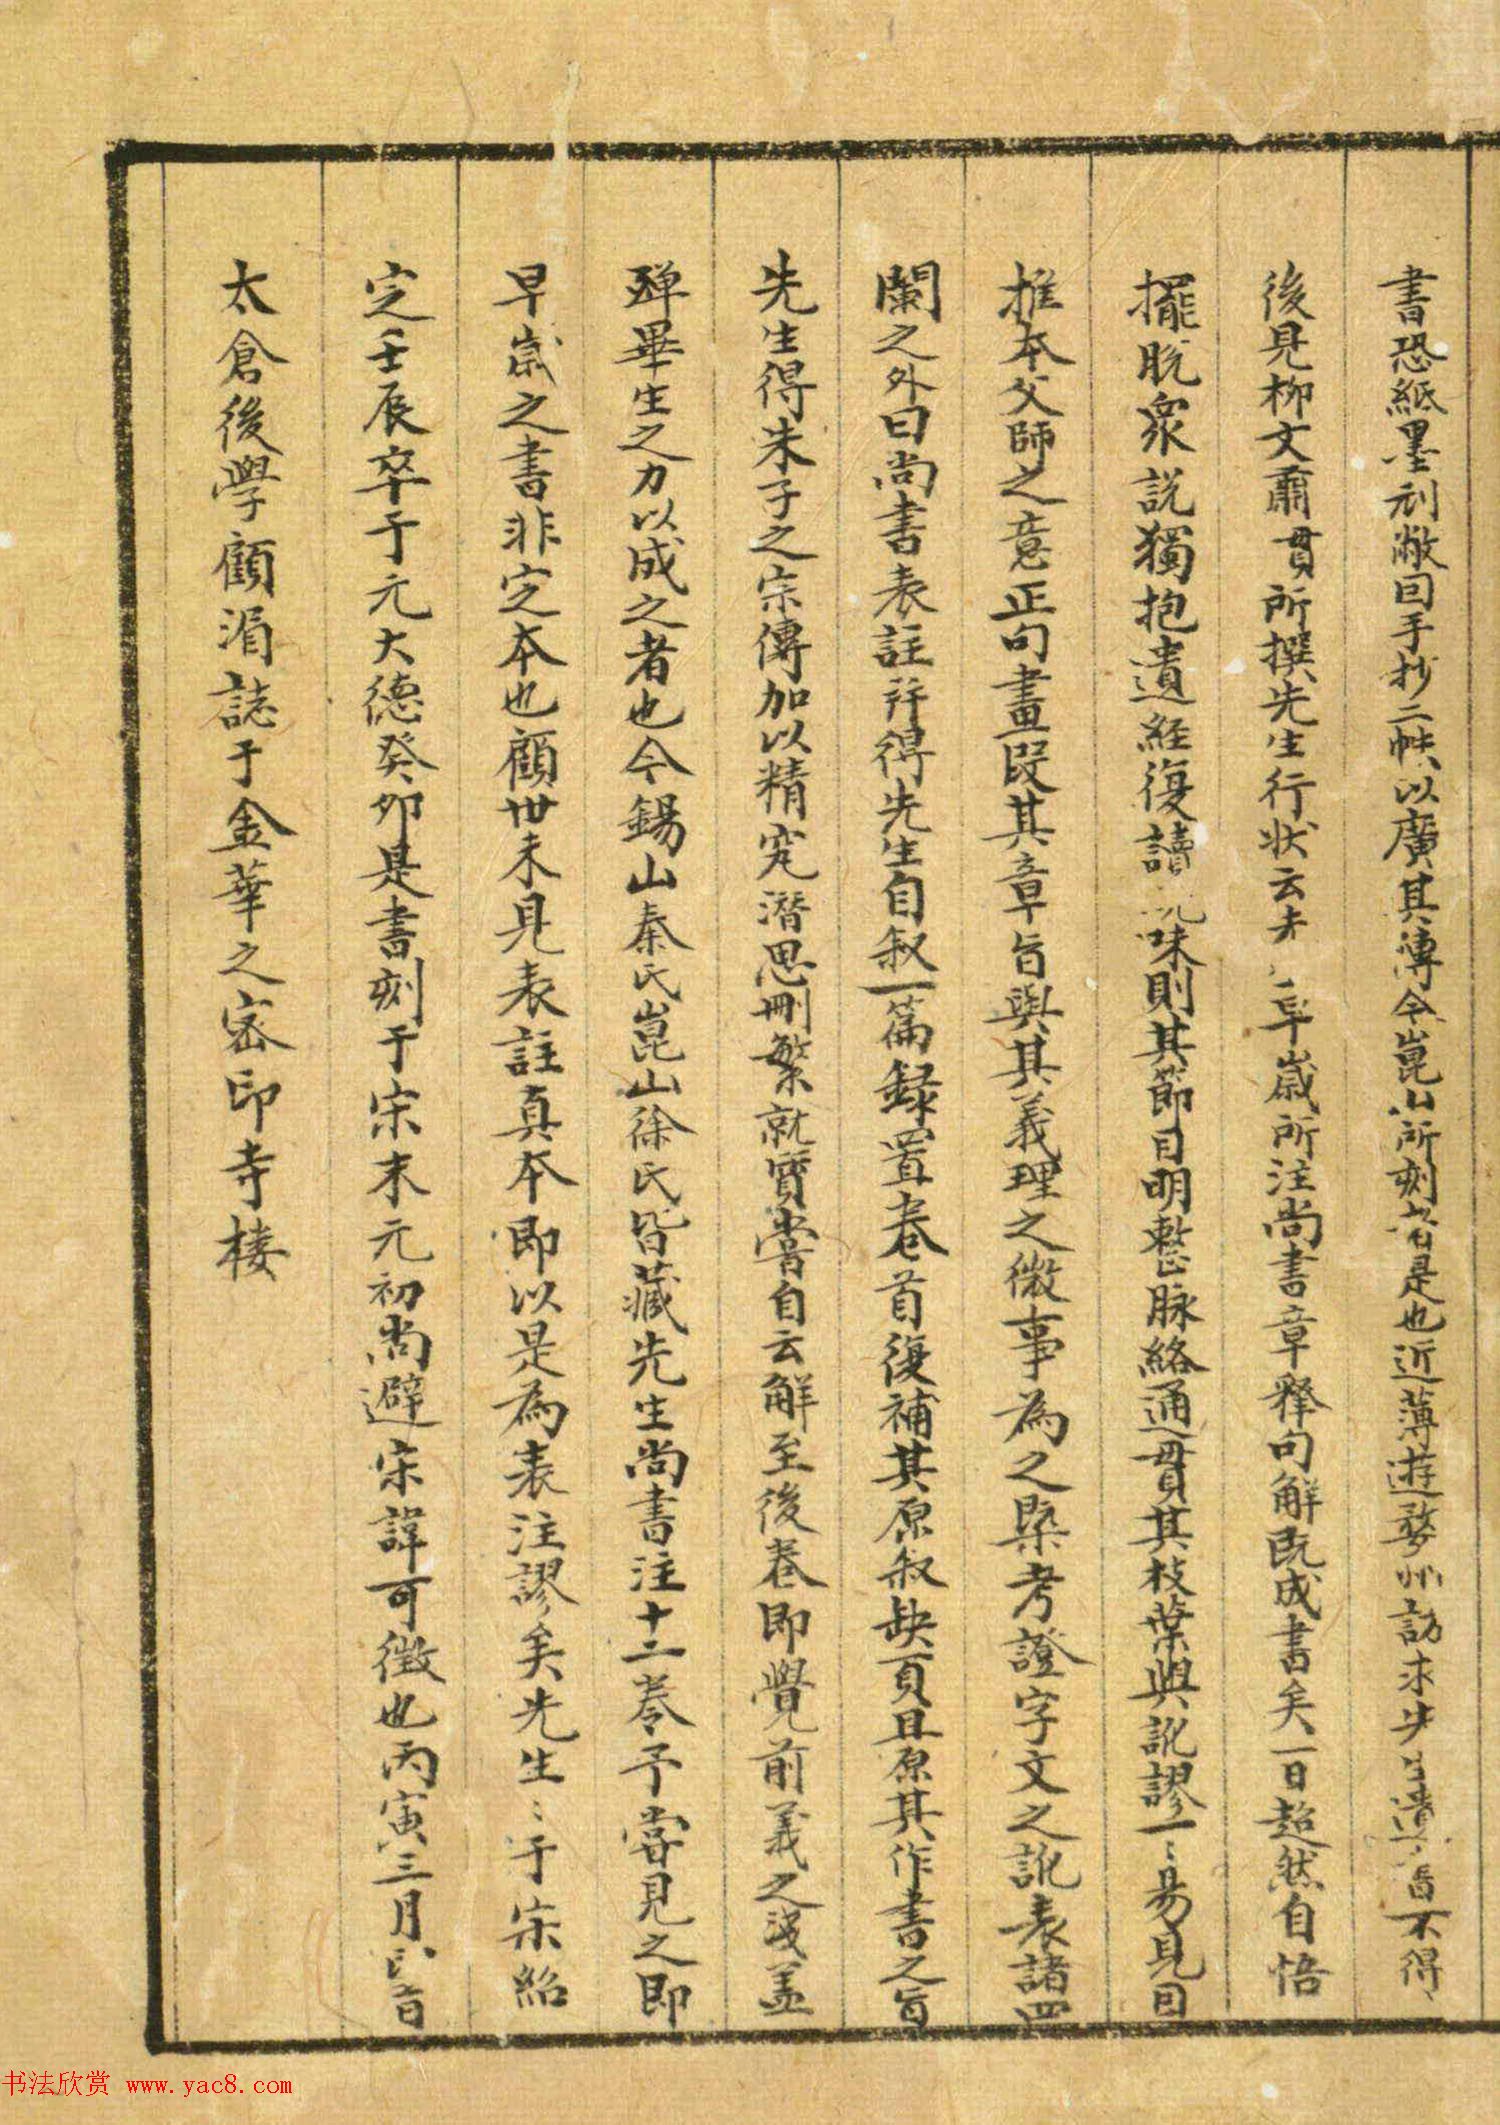 書恐紙墨刓敝因手抄二帙以廣其傳今崑山所刻者是也近薄遊婺州訪求先生遺書不得
後見柳文肅貫所撰先生行狀云先早歲所注尚書章釋句解既成書矣一日超然自悟
擺脫衆說獨抱遺經復讀玩味則其節目明整脉絡通貫其枝葉與訛謬一〻易見因
推本父師之意正句畫段其章旨與其義理之微事為之槩考證字文之訛表諸四
闌之外曰尚書表註并得先生自叙一篇録置卷首復補其原叙缺頁且原其作書之旨
先生得朱子之宗傳加以精究潛思刪繁就實嘗自云解至後卷即覺前義之淺葢
殫畢生之力以成之者也今錫山秦氏崑山徐氏皆藏先生尚書注十二卷予嘗見之即
早歲之書非定本也顧世未見表註真本即以是為表注謬矣先生〻于宋紹
定之壬辰卒于元大德癸卯是書刻于宋末元初尚避宋諱可徵也丙寅三月
太倉後學顧湄誌于金華之密印寺樓
书法欣赏 www.yac8.com